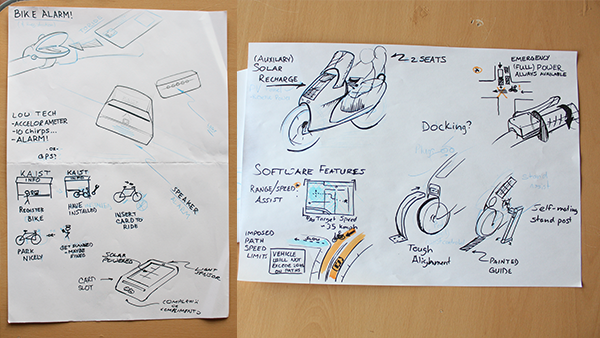 BIKE ALARM!
LOW TECH
-ACCELOROMETER
-10 CHIRPS...
-ALARM!
-OR-
GPS?
SPEAKER
KAIST
INFO
KAIST
INFO
REGISTER
BIKE
HAVE
INSTALLED
INSERT
CARD TO
RIDE
PARK
NICELY
OR
GET RUINED
-MAYBE
FINED
SOLAR
POWERED
CARD
SLOT
(AUXILARY)
SOLAR
RECHARGE
2 SEATS
EMERGENCY
(FULL) POWER
ALWAYS AVAILABLE
Docking?
SOFTWARE FEATURES
RANGE/SPEED
ASSIST
Target Speed
-35 kmph
IMPOSED
PATH
SPEED
LIMITS
VEHICLE
WILL NOT
EXCEED
ON PATHS
Tough
Alignment
Self-mating
stand post
PAINTED
GUIDE